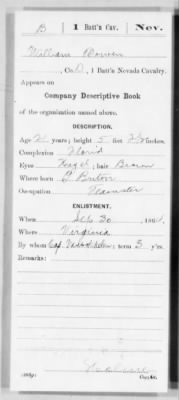 B | 1 Batt'n Cav. | Nev.
William
, Co. D, 1 Batt'n Nevada Cavalry.
Appears on
Company Descriptive Book
of the organization named above.
DESCRIPTION.
Age 21 years; height 5 feet inches.
Complexion Florid
Eyes Hazel; hair Brown
Where born
Occupation Teamster
ENLISTMENT.
When 30, 186
Where Virginia
By whom Cap. ; term 3 y'rs.
Remarks:
Copyist.